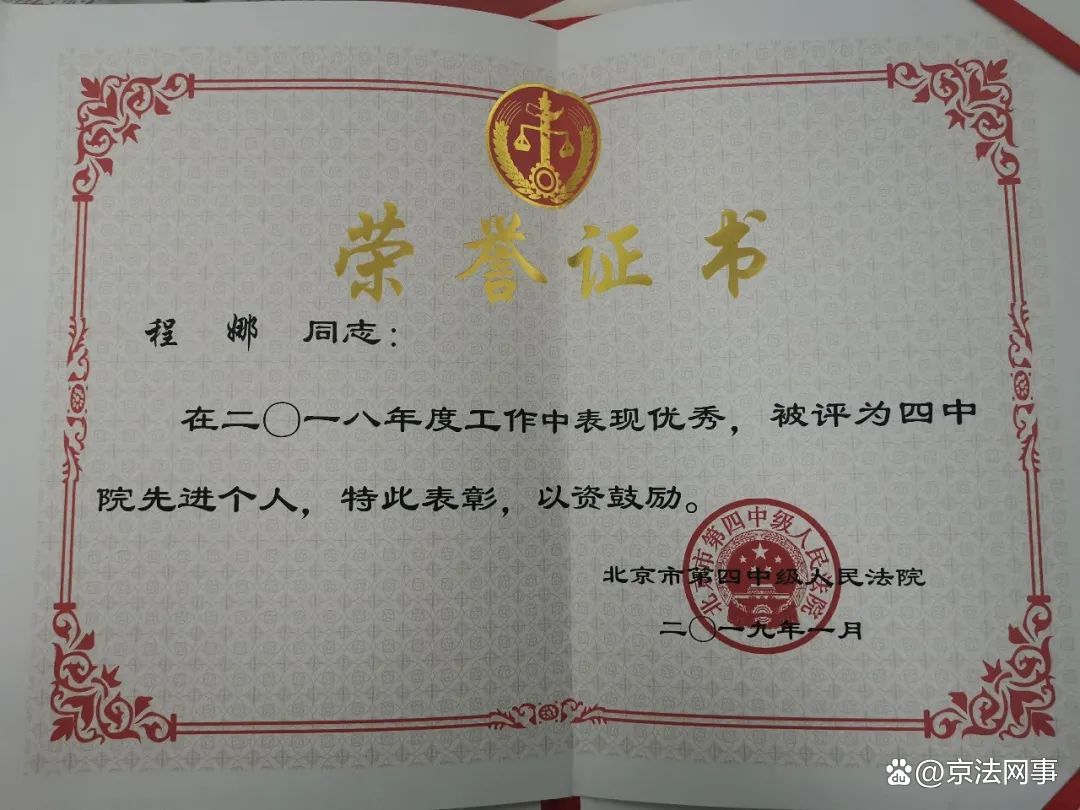 荣誉证书
程 娜 同志：
在二〇一八年度工作中表现优秀，被评为四中
院先进个人，特此表彰，以资鼓励。
北京市第四中级人民法院
北京市第四中级人民法院
二〇一九年一月
Baidu @京法网事